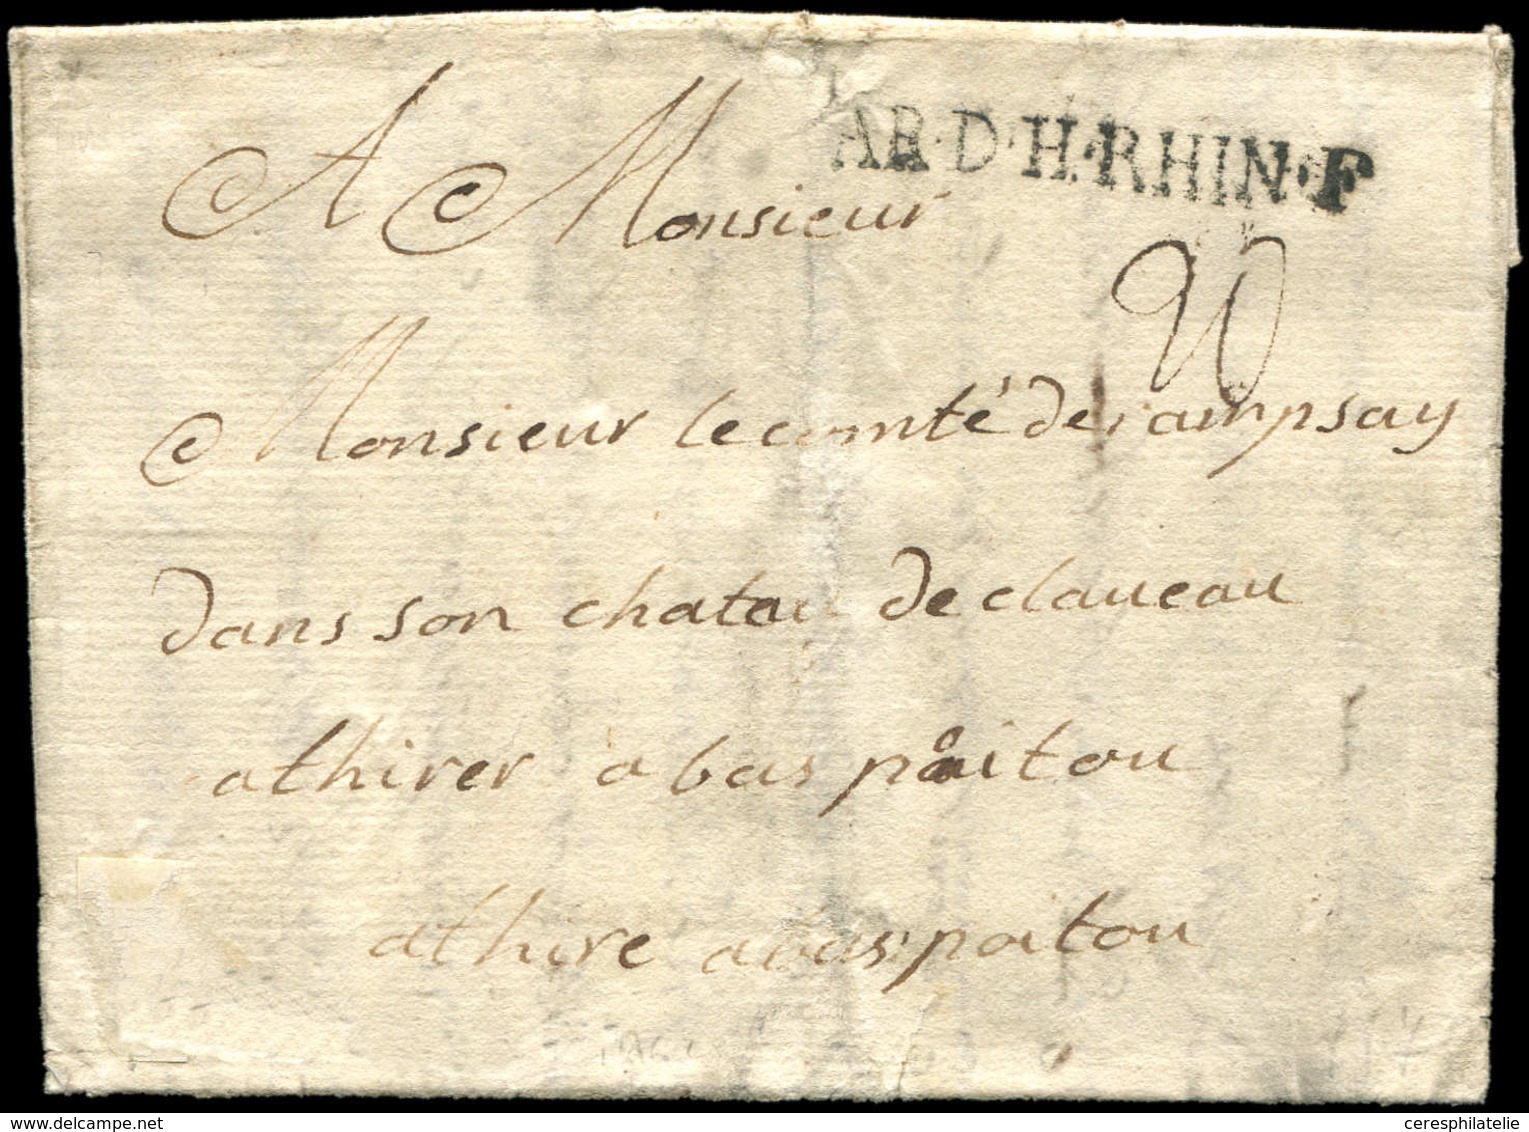 AR·D·H·RHIN·F
A Monsieur
Monsieur le comté de rampsay
dans son chateau de claueau
athirer à bas poitou
athire a bas poitou
www.delcampe.net
ceresphilatelie